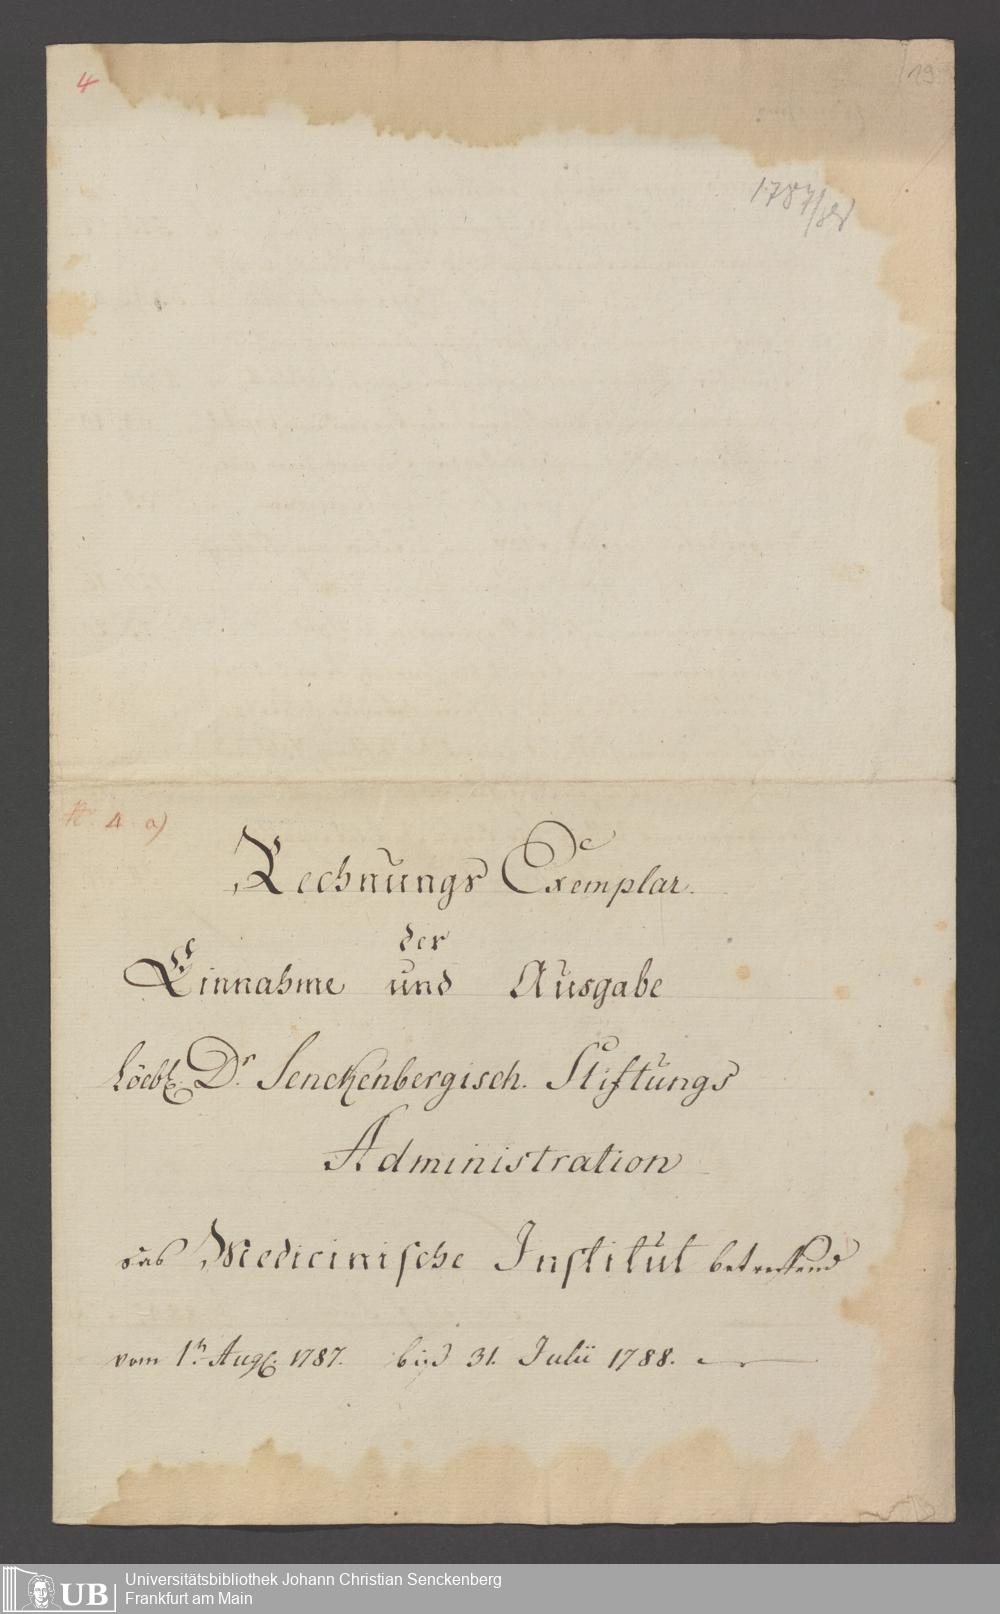 4
19
1787/88
No. 4 a)
Rechnungs Exemplar.
der
Einnahme und Ausgabe
Löebl. Dr. Senckenbergisch. Stiftungs
Administration
das Medicinische Institut betreffend
vom 1n. Aug. 1787. bis 31. Julii 1788.
UB
Universitätsbibliothek Johann Christian Senckenberg
Frankfurt am Main